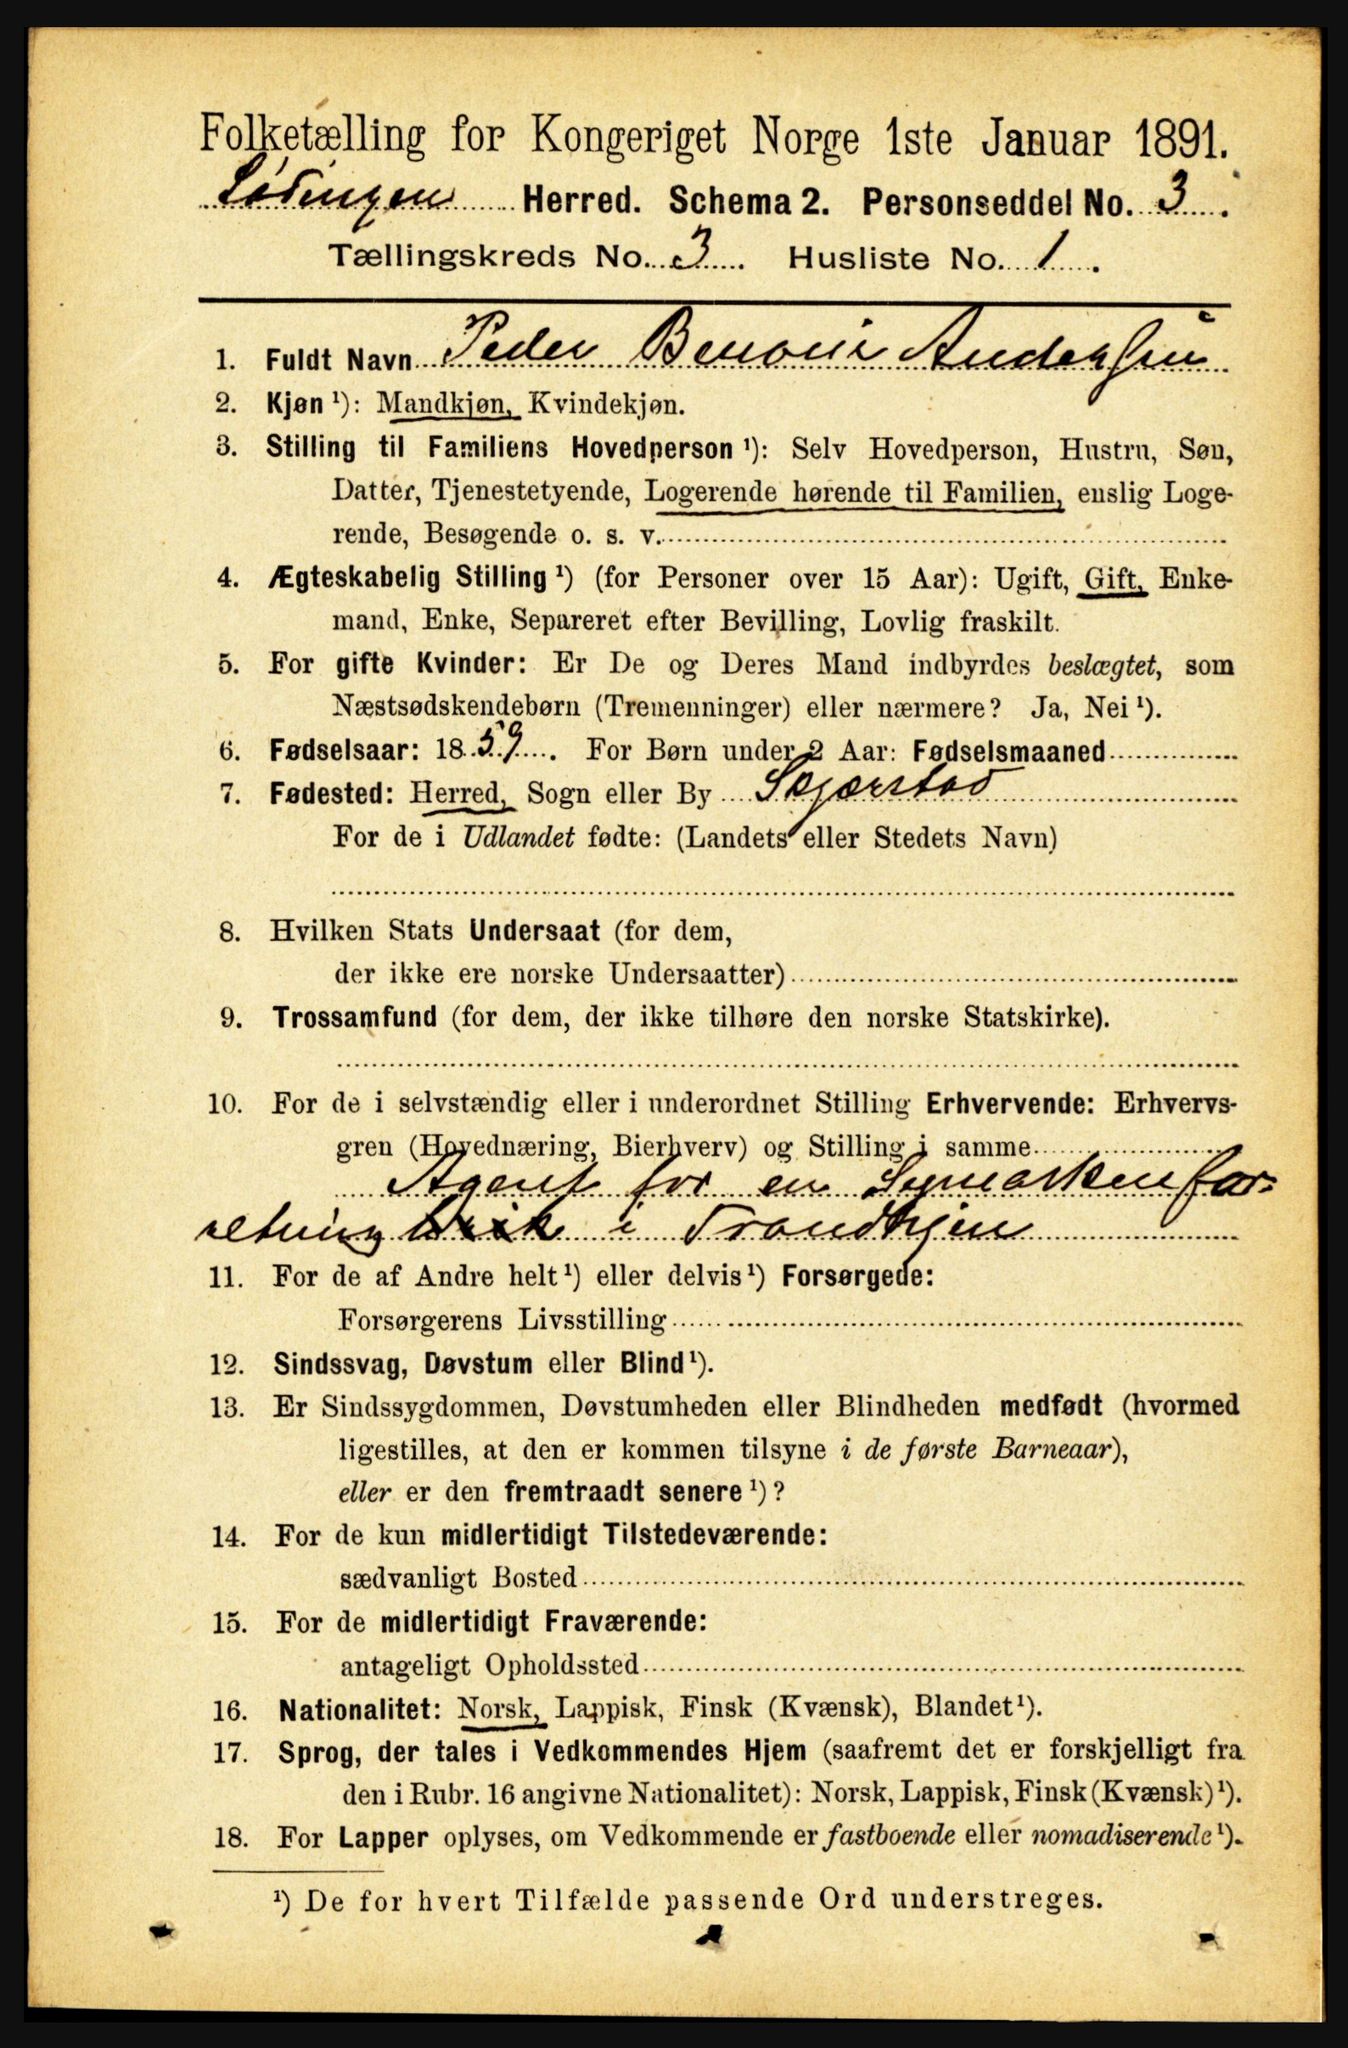 Folketælling for Kongeriget Norge 1ste Januar 1891.
Lødingen Herred. Schema 2. Personseddel No. 3.
Tællingskreds No. 3. Husliste No. 1.
1. Fuldt Navn Peder Benoni Andersen
2. Kjøn ¹): Mandkjøn, Kvindekjøn.
3. Stilling til Familiens Hovedperson ¹): Selv Hovedperson, Hustru, Søn,
Datter, Tjenestetyende, Logerende hørende til Familien, enslig Loge-
rende, Besøgende o. s. v.
4. Ægteskabelig Stilling ¹) (for Personer over 15 Aar): Ugift, Gift, Enke-
mand, Enke, Separeret efter Bevilling, Lovlig fraskilt.
5. For gifte Kvinder: Er De og Deres Mand indbyrdes beslægtet, som
Næstsødskendebørn (Tremenninger) eller nærmere? Ja, Nei ¹).
6. Fødselsaar: 1859. For Børn under 2 Aar: Fødselsmaaned
7. Fødested: Herred, Sogn eller By Skjærstad
For de i Udlandet fødte: (Landets eller Stedets Navn)
8. Hvilken Stats Undersaat (for dem,
der ikke ere norske Undersaatter)
9. Trossamfund (for dem, der ikke tilhøre den norske Statskirke).
10. For de i selvstændig eller i underordnet Stilling Erhvervende: Erhvervs-
gren (Hovednæring, Bierhverv) og Stilling i samme
Agent for en Symaskinfor-
retning i Trondhjem
11. For de af Andre helt ¹) eller delvis ¹) Forsørgede:
Forsørgerens Livsstilling
12. Sindssvag, Døvstum eller Blind ¹).
13. Er Sindssygdommen, Døvstumheden eller Blindheden medfødt (hvormed
ligestilles, at den er kommen tilsyne i de første Barneaar),
eller er den fremtraadt senere ¹)?
14. For de kun midlertidigt Tilstedeværende:
sædvanligt Bosted
15. For de midlertidigt Fraværende:
antageligt Opholdssted
16. Nationalitet: Norsk, Lappisk, Finsk (Kvænsk), Blandet ¹).
17. Sprog, der tales i Vedkommendes Hjem (saafremt det er forskjelligt fra
den i Rubr. 16 angivne Nationalitet): Norsk, Lappisk, Finsk (Kvænsk) ¹).
18. For Lapper oplyses, om Vedkommende er fastboende eller nomadiserende ¹).
¹) De for hvert Tilfælde passende Ord understreges.